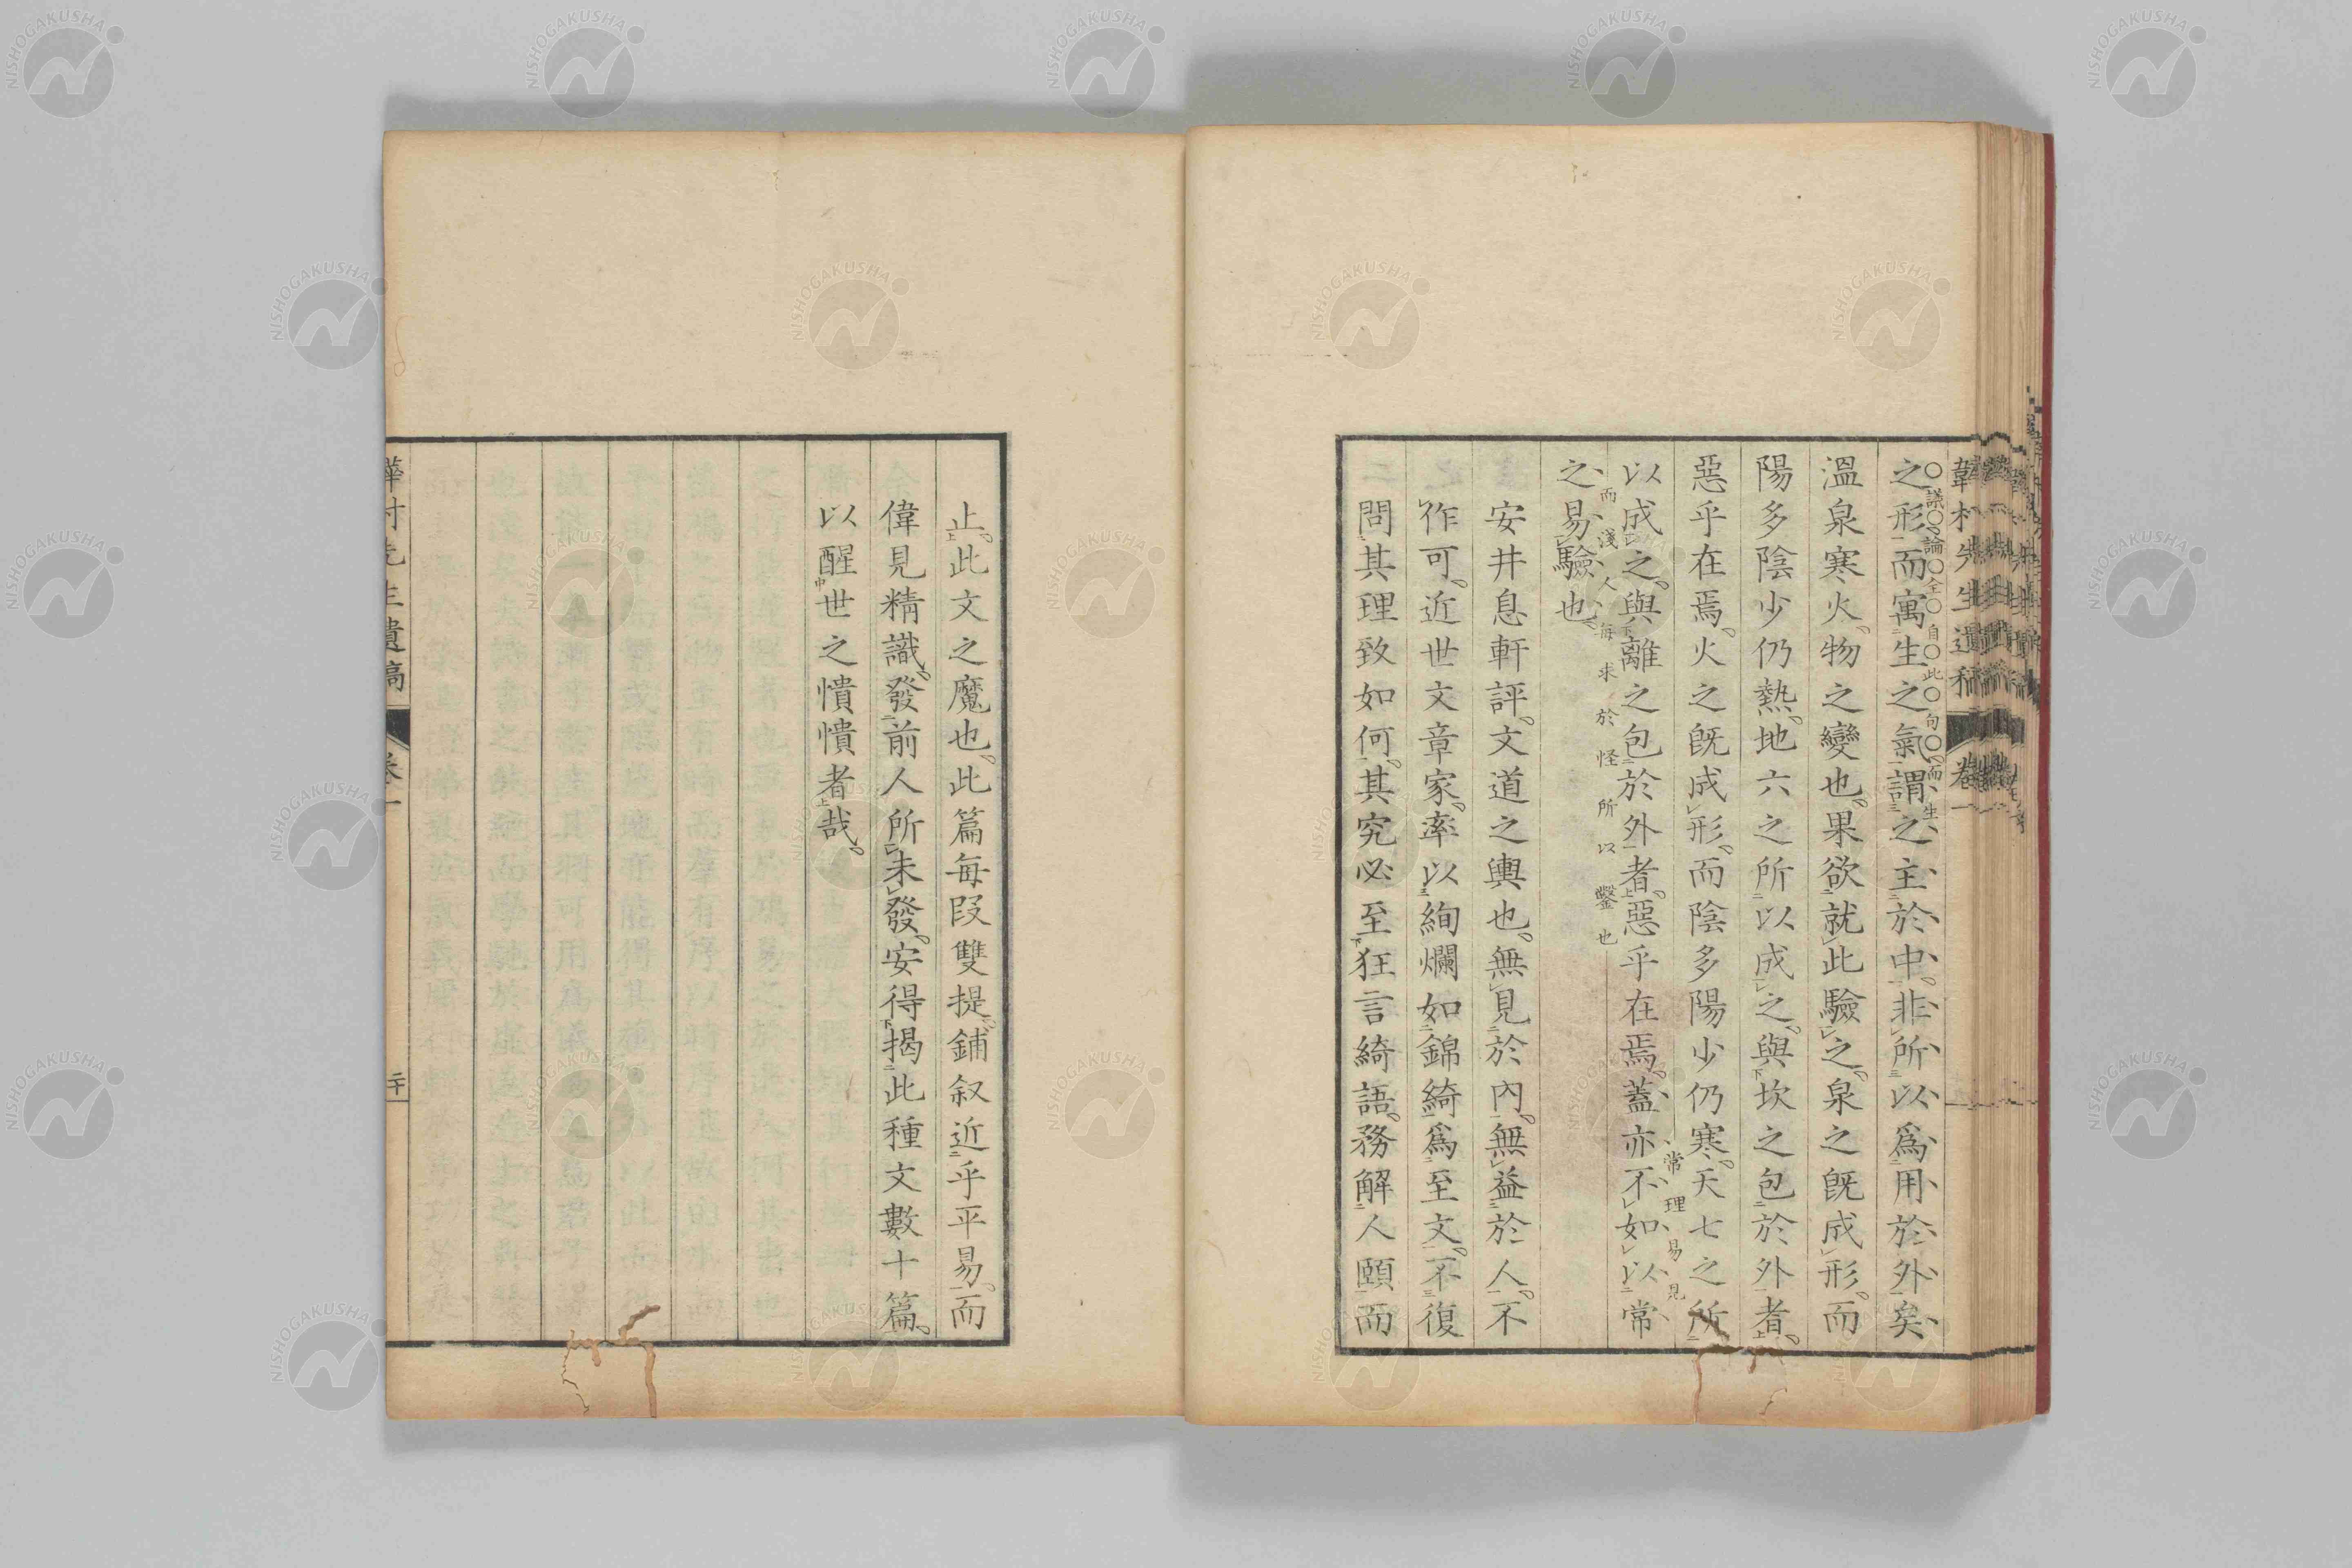 韡村先生遺稿 卷一
議論全自此句而生
之形而寓生之氣謂之主於中非所以爲用於外矣
溫泉寒火物之變也果欲就此驗之泉之既成形而
陽多陰少仍熱地六之所以成之與坎之包於外者
惡乎在焉火之既成形而陰多陽少仍寒天七之所
常理易見
以成之與離之包於外者惡乎在焉蓋亦不如以常
而淺人每求於怪所以鑿也
之易驗也
安井息軒評文道之輿也無見於內無益於人不
作可近世文章家率以絢爛如錦綺爲至文不復
問其理致如何其究必至狂言綺語務解人頤而
止此文之魔也此篇每段雙提鋪叙近乎平易而
偉見精識發前人所未發安得揭此種文數十篇
以醒世之憒憒者哉
韡村先生遺稿 卷一 二十
NISHOGAKUSHA